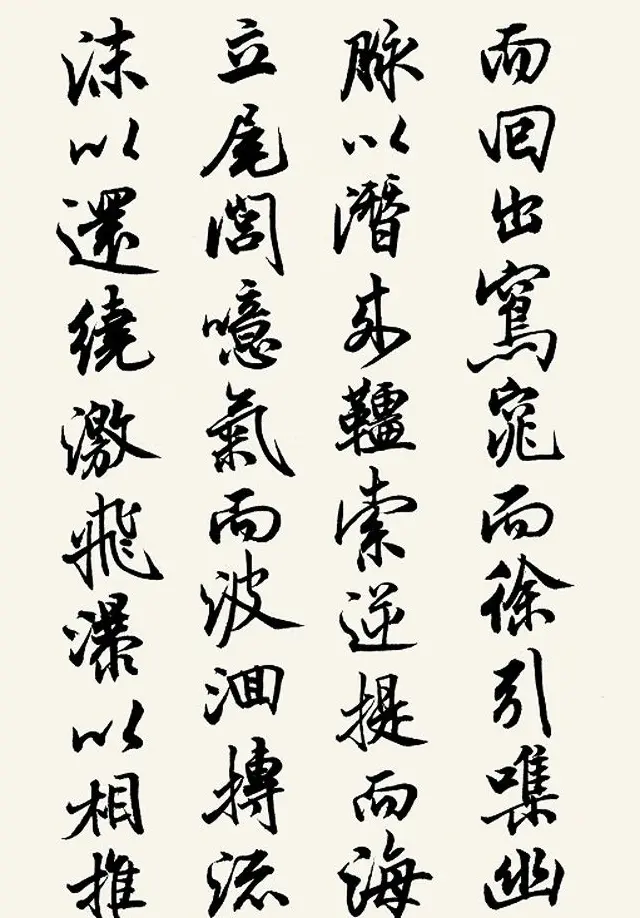 而回出窵窕而徐引㗱幽
脉以潛韁索逆提而海
立尾閭噫氣而波洄摶流
沫以還繞激飛瀑以相推